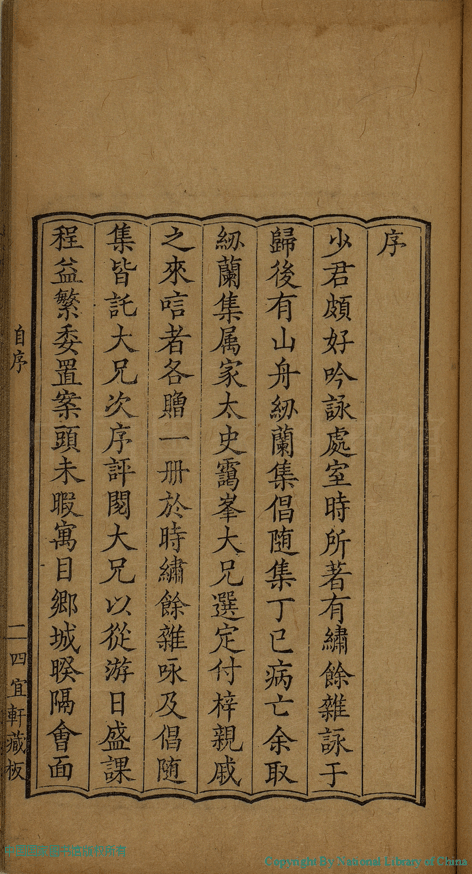 序
少君頗好吟詠處室時所著有繡餘雜詠于
歸後有山舟紉蘭集倡随集丁巳病亡余取
紉蘭集属家太史靄峯大兄選定付梓親戚
之來唁者各贈一册於時繡餘雜咏及倡随
集皆託大兄次序評閱大兄以從游日盛課
程益繁委置案頭未暇寓目鄉城暌隔會面
自序
二四宜軒藏板
Copyright By National Library of China